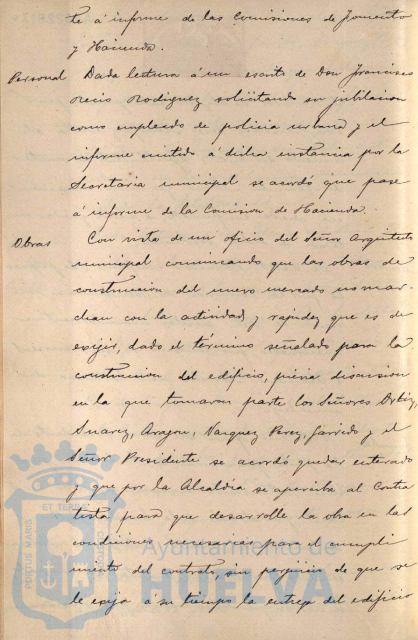 te á informe de las Comisiones de Fomento
y Hacienda.
Personal Dada lectura á un escrito de Don Francisco
Recio Rodriguez solicitando su jubilacion
como empleado de policia urbana y el
informe emitido á dicha instancia por la
Secretaria municipal se acordó que pase
á informe de la Comision de Hacienda.
Obras Con vista de un oficio del Señor Arquitecto
municipal comunicando que las obras de
construccion del nuevo mercado no mar-
chan con la actividad y rapidez que es de
exijir, dado el término señalado para la
construccion del edificio, previa discusion
en la que tomaron parte los Señores
Suarez, Aragon, Vazquez Perez, Garrido y el
Señor Presidente se acordó quedar enterado
y que por la Alcaldia se aperciba al Contra
tista para que desarrolle la obra en las
condiciones necesarias para el cumpli
miento del contrato, sin perjuicio de que se
le exija á su tiempo la entrega del edificio
PORTUS MARIS ET TERRAE
Ayuntamiento de
HUELVA